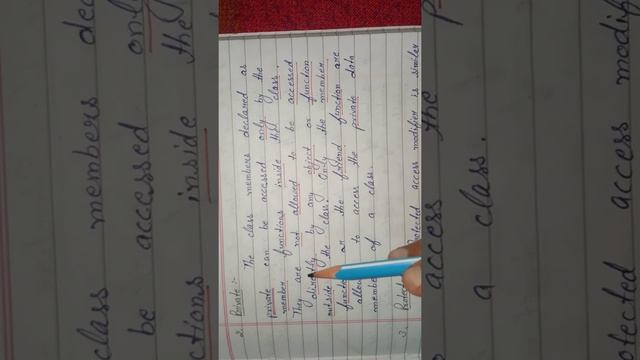 2. Private :-
The class members declared as
private can be accessed only by the
member functions inside the class.
They are not allowed to be accessed
directly by any object or function
outside the class. Only the member
functions or the friend function are
allowed to access the private data
members of a class.
3. Protected access modifier is similar
class members dec
be accessed only
ctions inside the
access the p
a class.
otected access modif